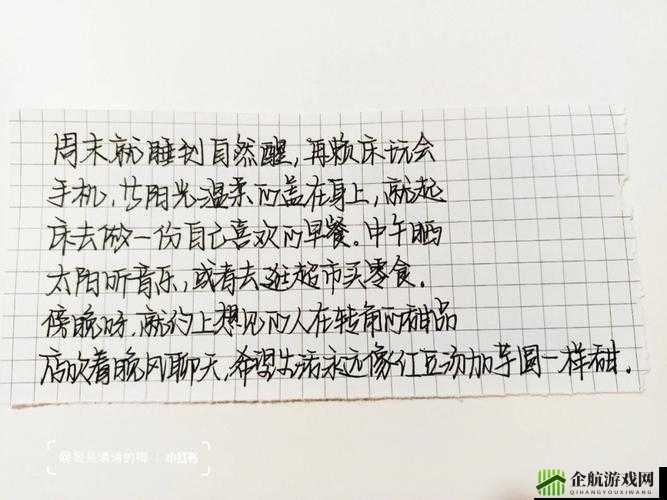 周末就睡到自然醒,再赖床玩会
手机,当阳光温柔的盖在身上,就起
床去做一份自己喜欢的早餐。中午晒
太阳听音乐,或者去逛超市买零食.
傍晚时,就约上想见的人在转角的甜品
店吹着晚风聊天,希望生活永远像红豆汤加芋圆一样甜.
小红书
企航游戏网
QIHANGYOUXIWANG